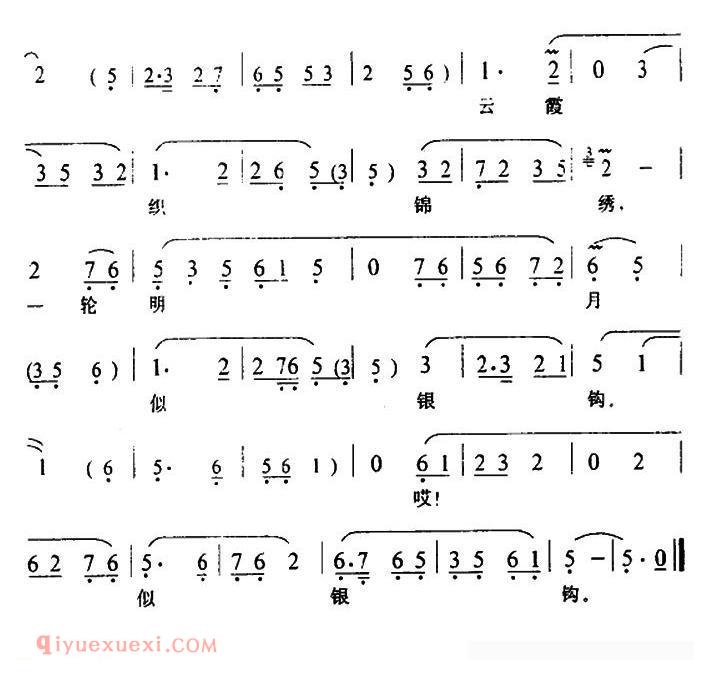 2 ( 5 | 2·3 2 7 | 6 5 5 3 | 2 5 6 ) | 1· 2 | 0 3 |
云 霞
3 5 3 2 | 1· 2 | 2 6 5 (3 | 5 ) 3 2 | 7 2 3 5 | 3 2 - |
织 锦 绣,
2 7 6 | 5 3 5 6 1 5 | 0 7 6 | 5 6 7 2 | 6 5 |
一 轮 明 月
(3 5 6 ) | 1· 2 | 2 7 6 5 (3 | 5 ) 3 | 2·3 2 1 | 5 1 |
似 银 钩,
1 ( 6 | 5· 6 | 5 6 1 ) | 0 6 1 | 2 3 2 | 0 2 |
哎!
6 2 7 6 | 5· 6 | 7 6 2 | 6·7 6 5 | 3 5 6 1 | 5 - | 5· 0 ‖
似 银 钩。
qiyuexuexi.COM